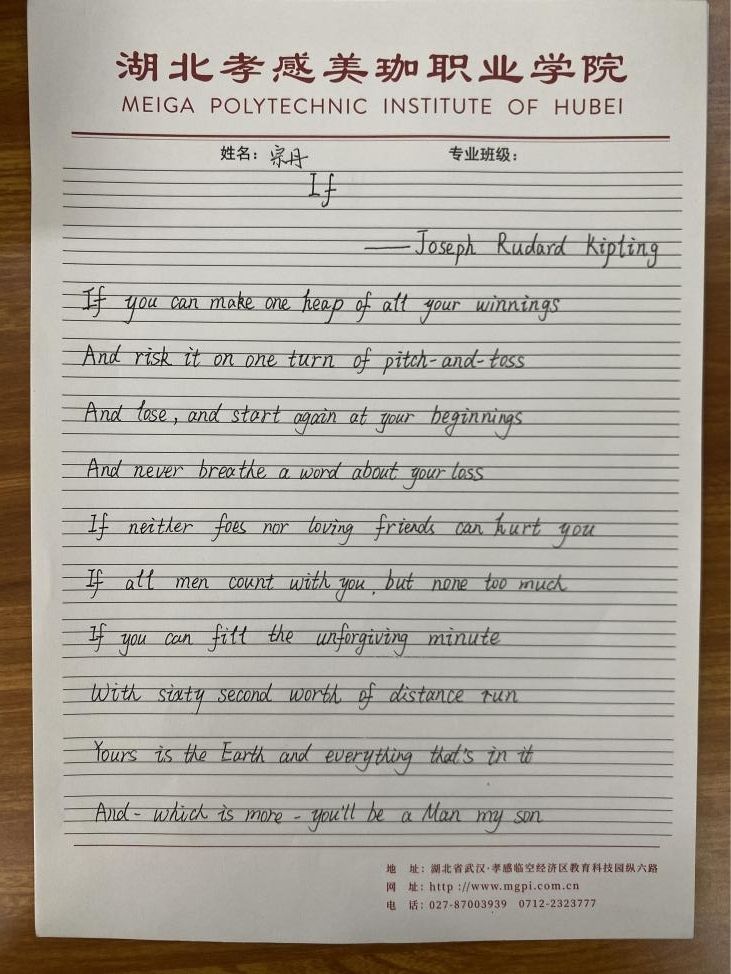 湖北孝感美珈职业学院
MEIGA POLYTECHNIC INSTITUTE OF HUBEI
姓名：宗丹 专业班级：
If
——Joseph Rudard Kipling
If you can make one heap of all your winnings
And risk it on one turn of pitch-and-toss
And lose, and start again at your beginnings
And never breathe a word about your loss
If neither foes nor loving friends can hurt you
If all men count with you, but none too much
If you can fill the unforgiving minute
With sixty second worth of distance run
Yours is the Earth and everything that's in it
And - which is more - you'll be a Man my son
地 址：湖北省武汉·孝感临空经济区教育科技园纵六路
网 址：http://www.mgpi.com.cn
电 话：027-87003939 0712-2323777